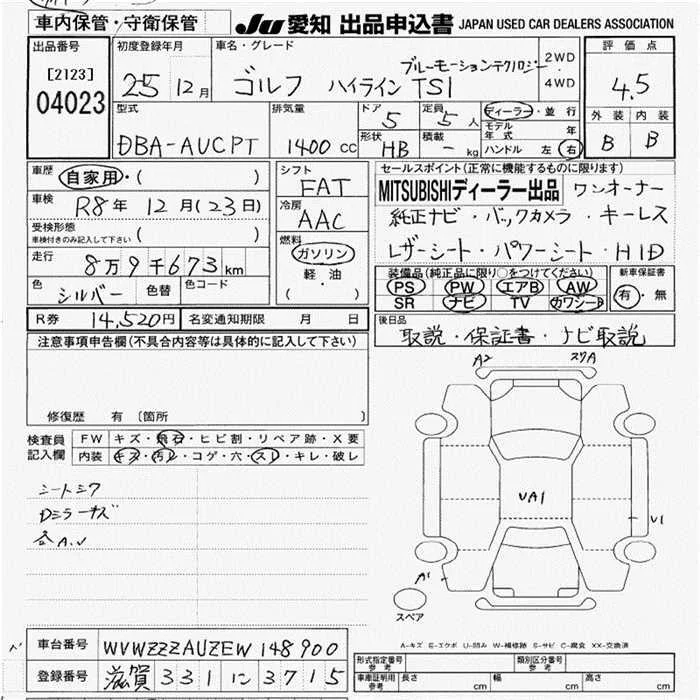 車内保管・守衛保管 JU 愛知 出品申込書 JAPAN USED CAR DEALERS ASSOCIATION
出品番号 初度登録年月 車名・グレード 評価点
[2123] 04023
25 12月 ゴルフ ハイライン TSI ブルーモーションテクノロジー 2WD・4WD 4.5
型式 排気量 ドア 定員 ディーラー・並行 外装 内装
DBA-AUCPT 1400cc 5 5人 モデル年式 年 B B
形状 積載
HB -kg ハンドル 左 右
車歴 自家用・( ) シフト セールスポイント(正常に機能するものに限ります)
FAT MITSUBISHIディーラー出品 ワンオーナー
車検 R8年 12月(23日) 冷房 純正ナビ・バックカメラ・キーレス
受検形態 車検付きのみ記入して下さい ( ) AAC
燃料 レザーシート・パワーシート・HID
走行 8万9千673km ガソリン 装備品(純正品に限り○をつけてください) 新車保証書
軽・油 PS PW エアB AW 有・無
色 シルバー 色替 色コード ( ) SR ナビ TV カワシート
R券 14,520円 名変通知期限 月 日 後日品
取説・保証書・ナビ取説
注意事項申告欄(不具合内容等は具体的に記入して下さい)
A2 スリA
修復歴 有 [箇所
検査員記入欄 FW キズ・飛石・ヒビ割・リペア跡・X要
内装 キズ・汚レ・コゲ・穴・スレ・キレ・破レ
シートシワ UA1
Dミラーキズ U1
各A.U
A1
スペア
A-キズ E-エクボ U-凹み W-補修跡 S-サビ C-腐食 XX-交換済
車台番号 WVWZZZAUZEW148900
形式指定番号 参考 類別区分番号 参考
登録番号 滋賀 331 に 3715 車庫証明用 参考 長さ cm 幅 cm 高さ cm